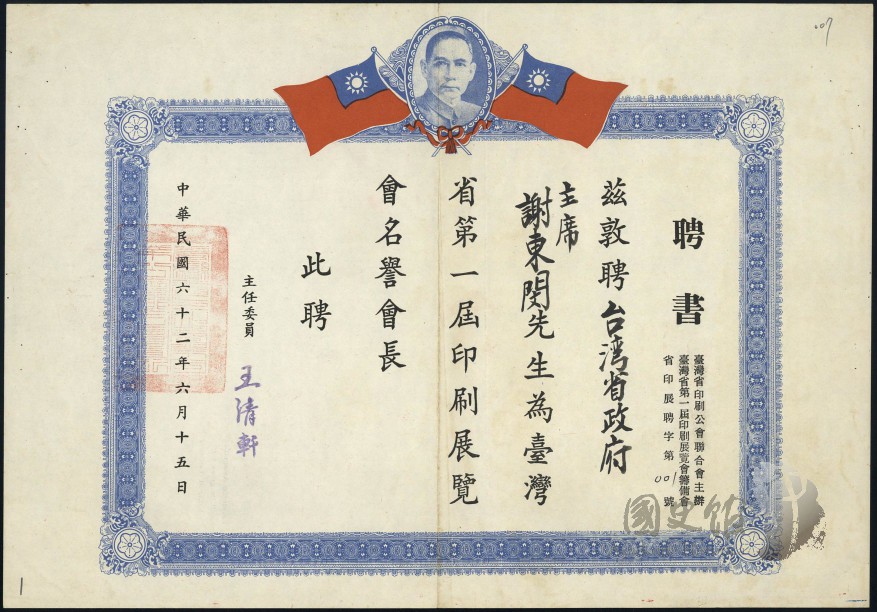 聘書
臺灣省印刷公會聯合會主辦
臺灣省第一屆印刷展覽會籌備會
省印展聘字第001號
茲敦聘台湾省政府
主席
謝東閔先生為臺灣
省第一屆印刷展覽
會名譽會長
此聘
主任委員 王清軒
中華民國六十二年六月十五日
國史館